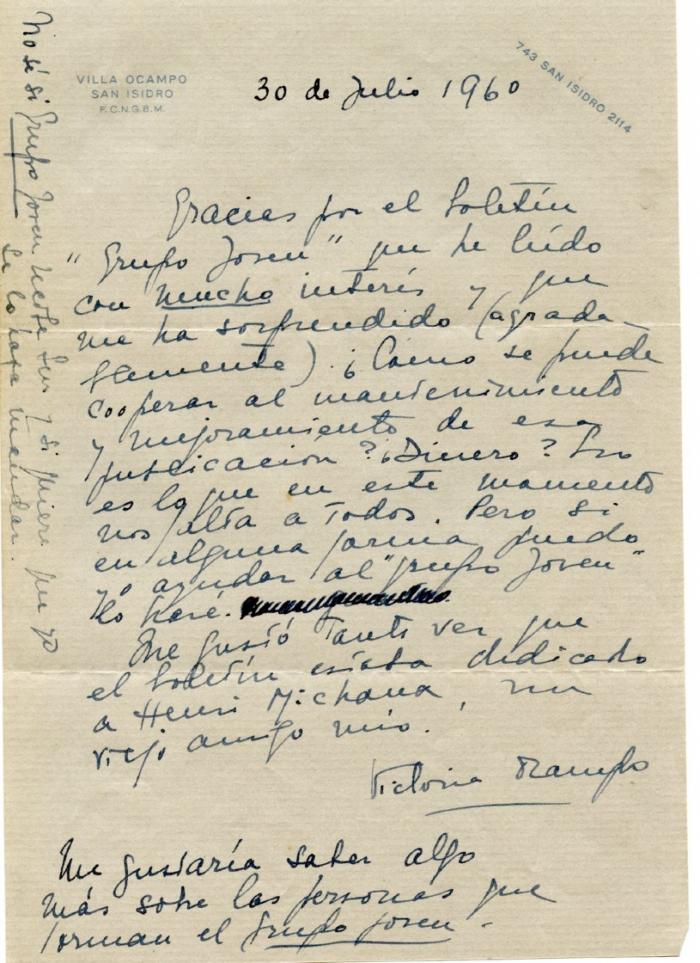 VILLA OCAMPO
SAN ISIDRO
F.C.N.G.B.M.
743 SAN ISIDRO 2114
30 de Julio 1960
Gracias por el boletín
"Grupo Joven" que he leído
con mucho interés y que
me ha sorprendido (agrada-
blemente). ¿Cómo se puede
cooperar al mantenimiento
y mejoramiento de esa
publicación? ¿Dinero? Eso
es lo que en este momento
nos falta a todos. Pero si
en alguna forma puedo
yo ayudar al "grupo Joven"
lo haré.
Me gustó tanto ver que
el boletín estaba dedicado
a Henri Michaux, un
viejo amigo mío.
Victoria Ocampo
Me gustaría saber algo
más sobre las personas que
forman el Grupo Joven.
No sé si Grupo Joven recibe Sur y si quiere que yo
se lo haga mandar.